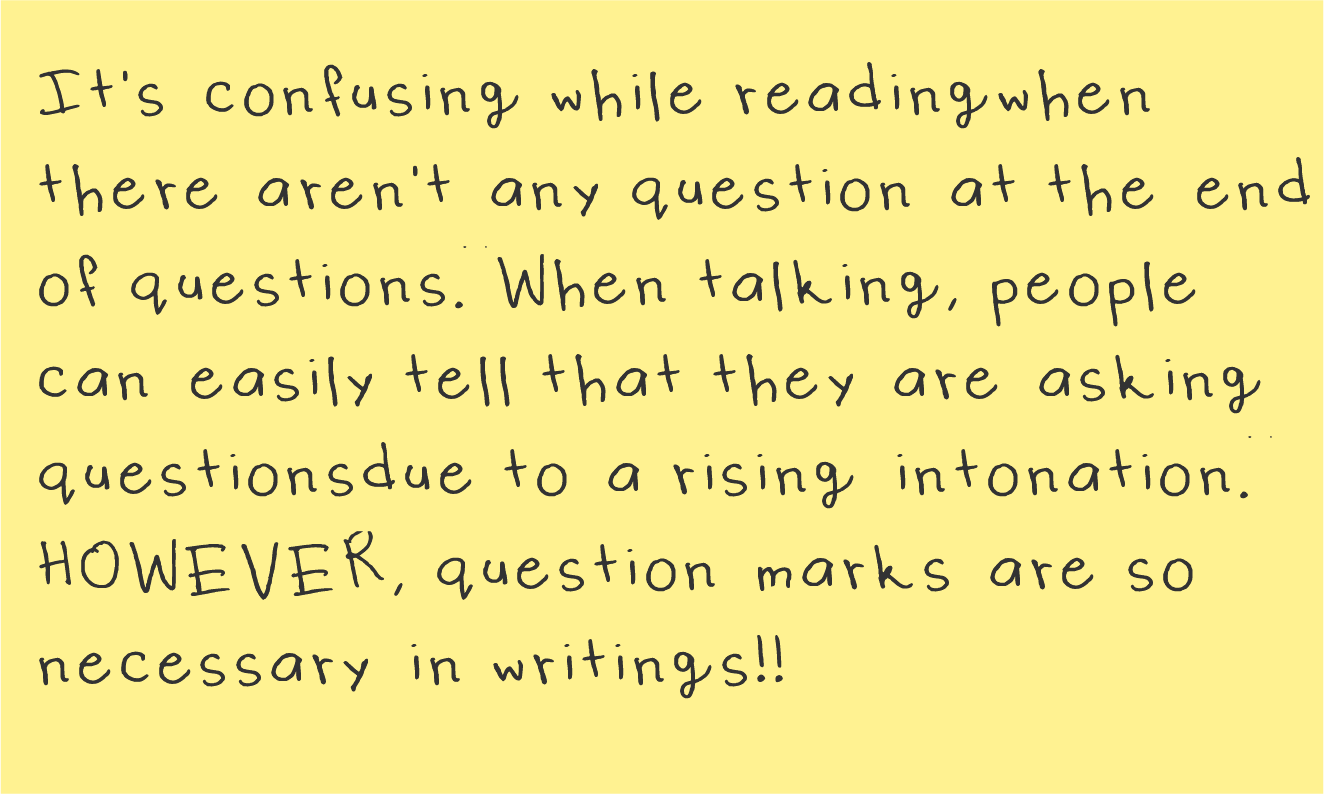 It's confusing while readingwhen
there aren't any question at the end
of questions. When talking, people
can easily tell that they are asking
questionsdue to a rising intonation.
HOWEVER, question marks are so
necessary in writings!!